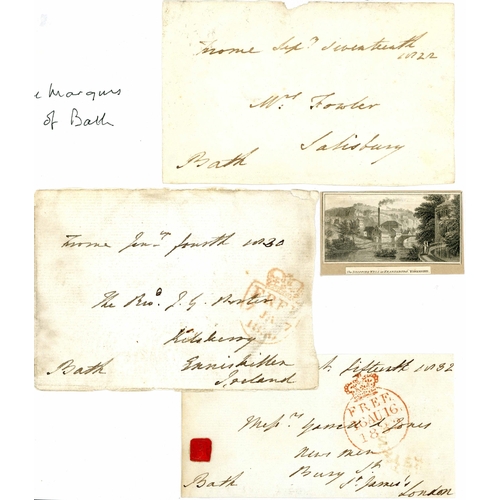 Frome Sepr. Seventeenth
1822
Mrs. Fowler
Salisbury
Bath
e Marquis
of Bath
Frome Jany. fourth 1830
The Revd. J. G. Porter
Kilskerry
Enniskillen
Ireland
Bath
FREE
fifteenth 1832
Messrs. Garrett & Jones
News Men
Bury St.
St. James's
London
Bath
FREE
16 AU 16